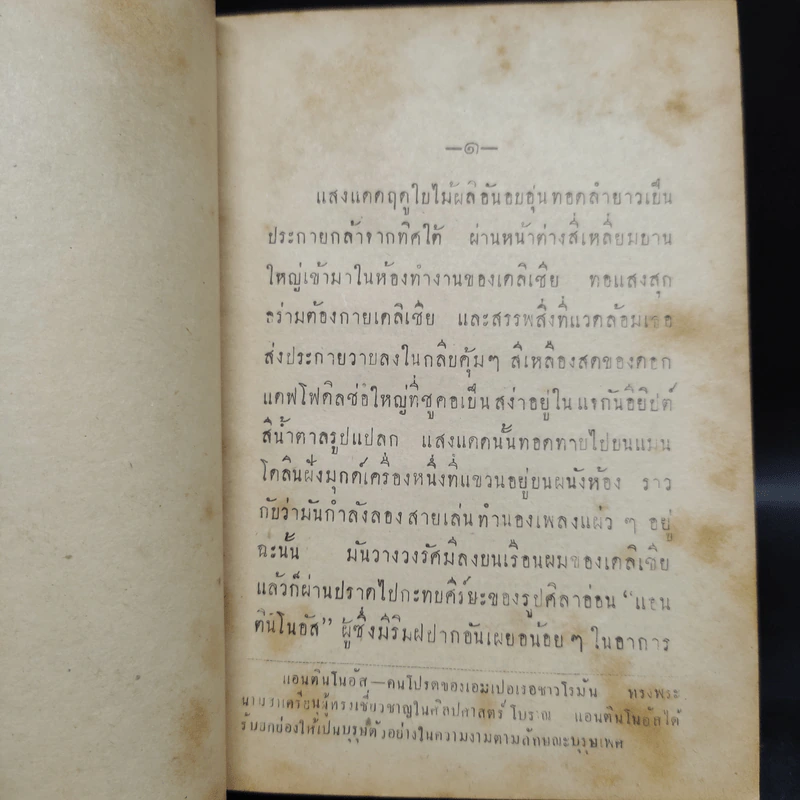 —๑—
แสงแดดฤดูใบไม้ผลิอันอบอุ่นทอดลำยาวเป็น
ประกายกล้าจากทิศใต้ ผ่านหน้าต่างสี่เหลี่ยมบาน
ใหญ่เข้ามาในห้องทำงานของเดลิเซีย ทอแสงสุก
อร่ามต้องกายเดลิเซีย และสรรพสิ่งที่แวดล้อมเธอ
ส่งประกายวาบลงในกลีบคุ้มๆ สีเหลืองสดของดอก
แดฟโฟดิลช่อใหญ่ที่ชูคอเป็นสง่าอยู่ในแจกันอิยิปต์
สีน้ำตาลรูปแปลก แสงแดดนั้นทอดทาบไปบนแมน
โดลินฝังมุกด์เครื่องหนึ่งที่แขวนอยู่บนผนังห้อง ราว
กับว่ามันกำลังลองสายเล่นทำนองเพลงแผ่ว ๆ อยู่
ฉะนั้น มันวางวงรัศมีลงบนเรือนผมของเดลิเซีย
แล้วก็ผ่านปราดไปกะทบศีร์ษะของรูปศิลาอ่อน “แอน
ตินโนอัส” ผู้ซึ่งมีริมฝีปากอันเผยอน้อย ๆ ในอาการ
แอนตินโนอัส—คนโปรดของเอมเปอเรอชาวโรมัน ทรงพระ
นามฮาเดรียนผู้ทรงเชี่ยวชาญในศิลปศาสตร์โบราณ แอนตินโนอัสได้
รับยกย่องให้เป็นบุรุษตัวอย่างในความงามตามลักษณะบุรุษเพศ